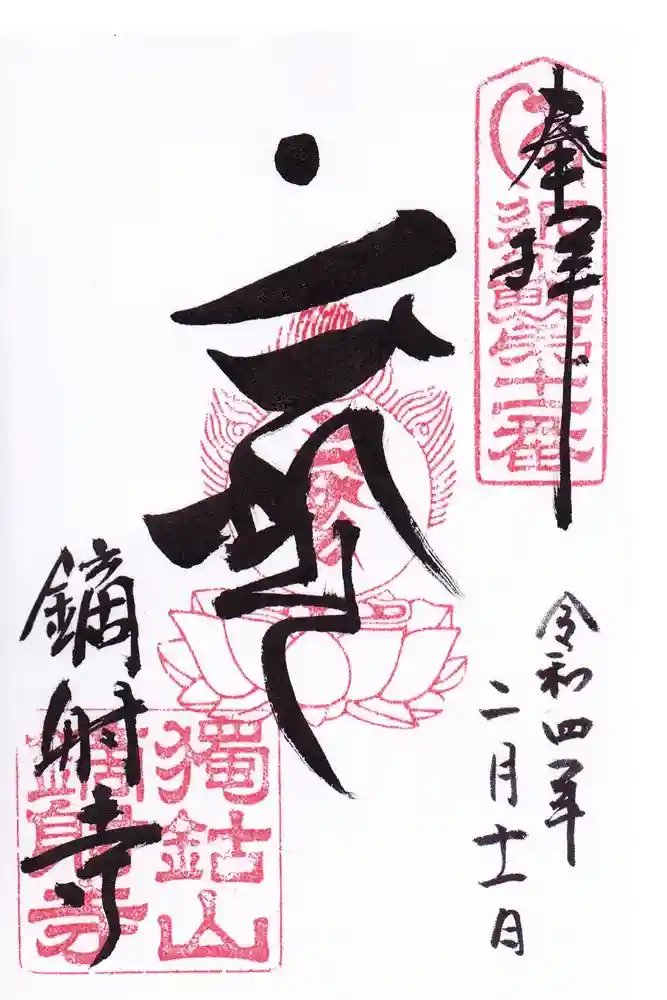 奉拝
近畿第十二番
令和四年
二月十一日
鏑射寺
獨鈷山
鏑射寺